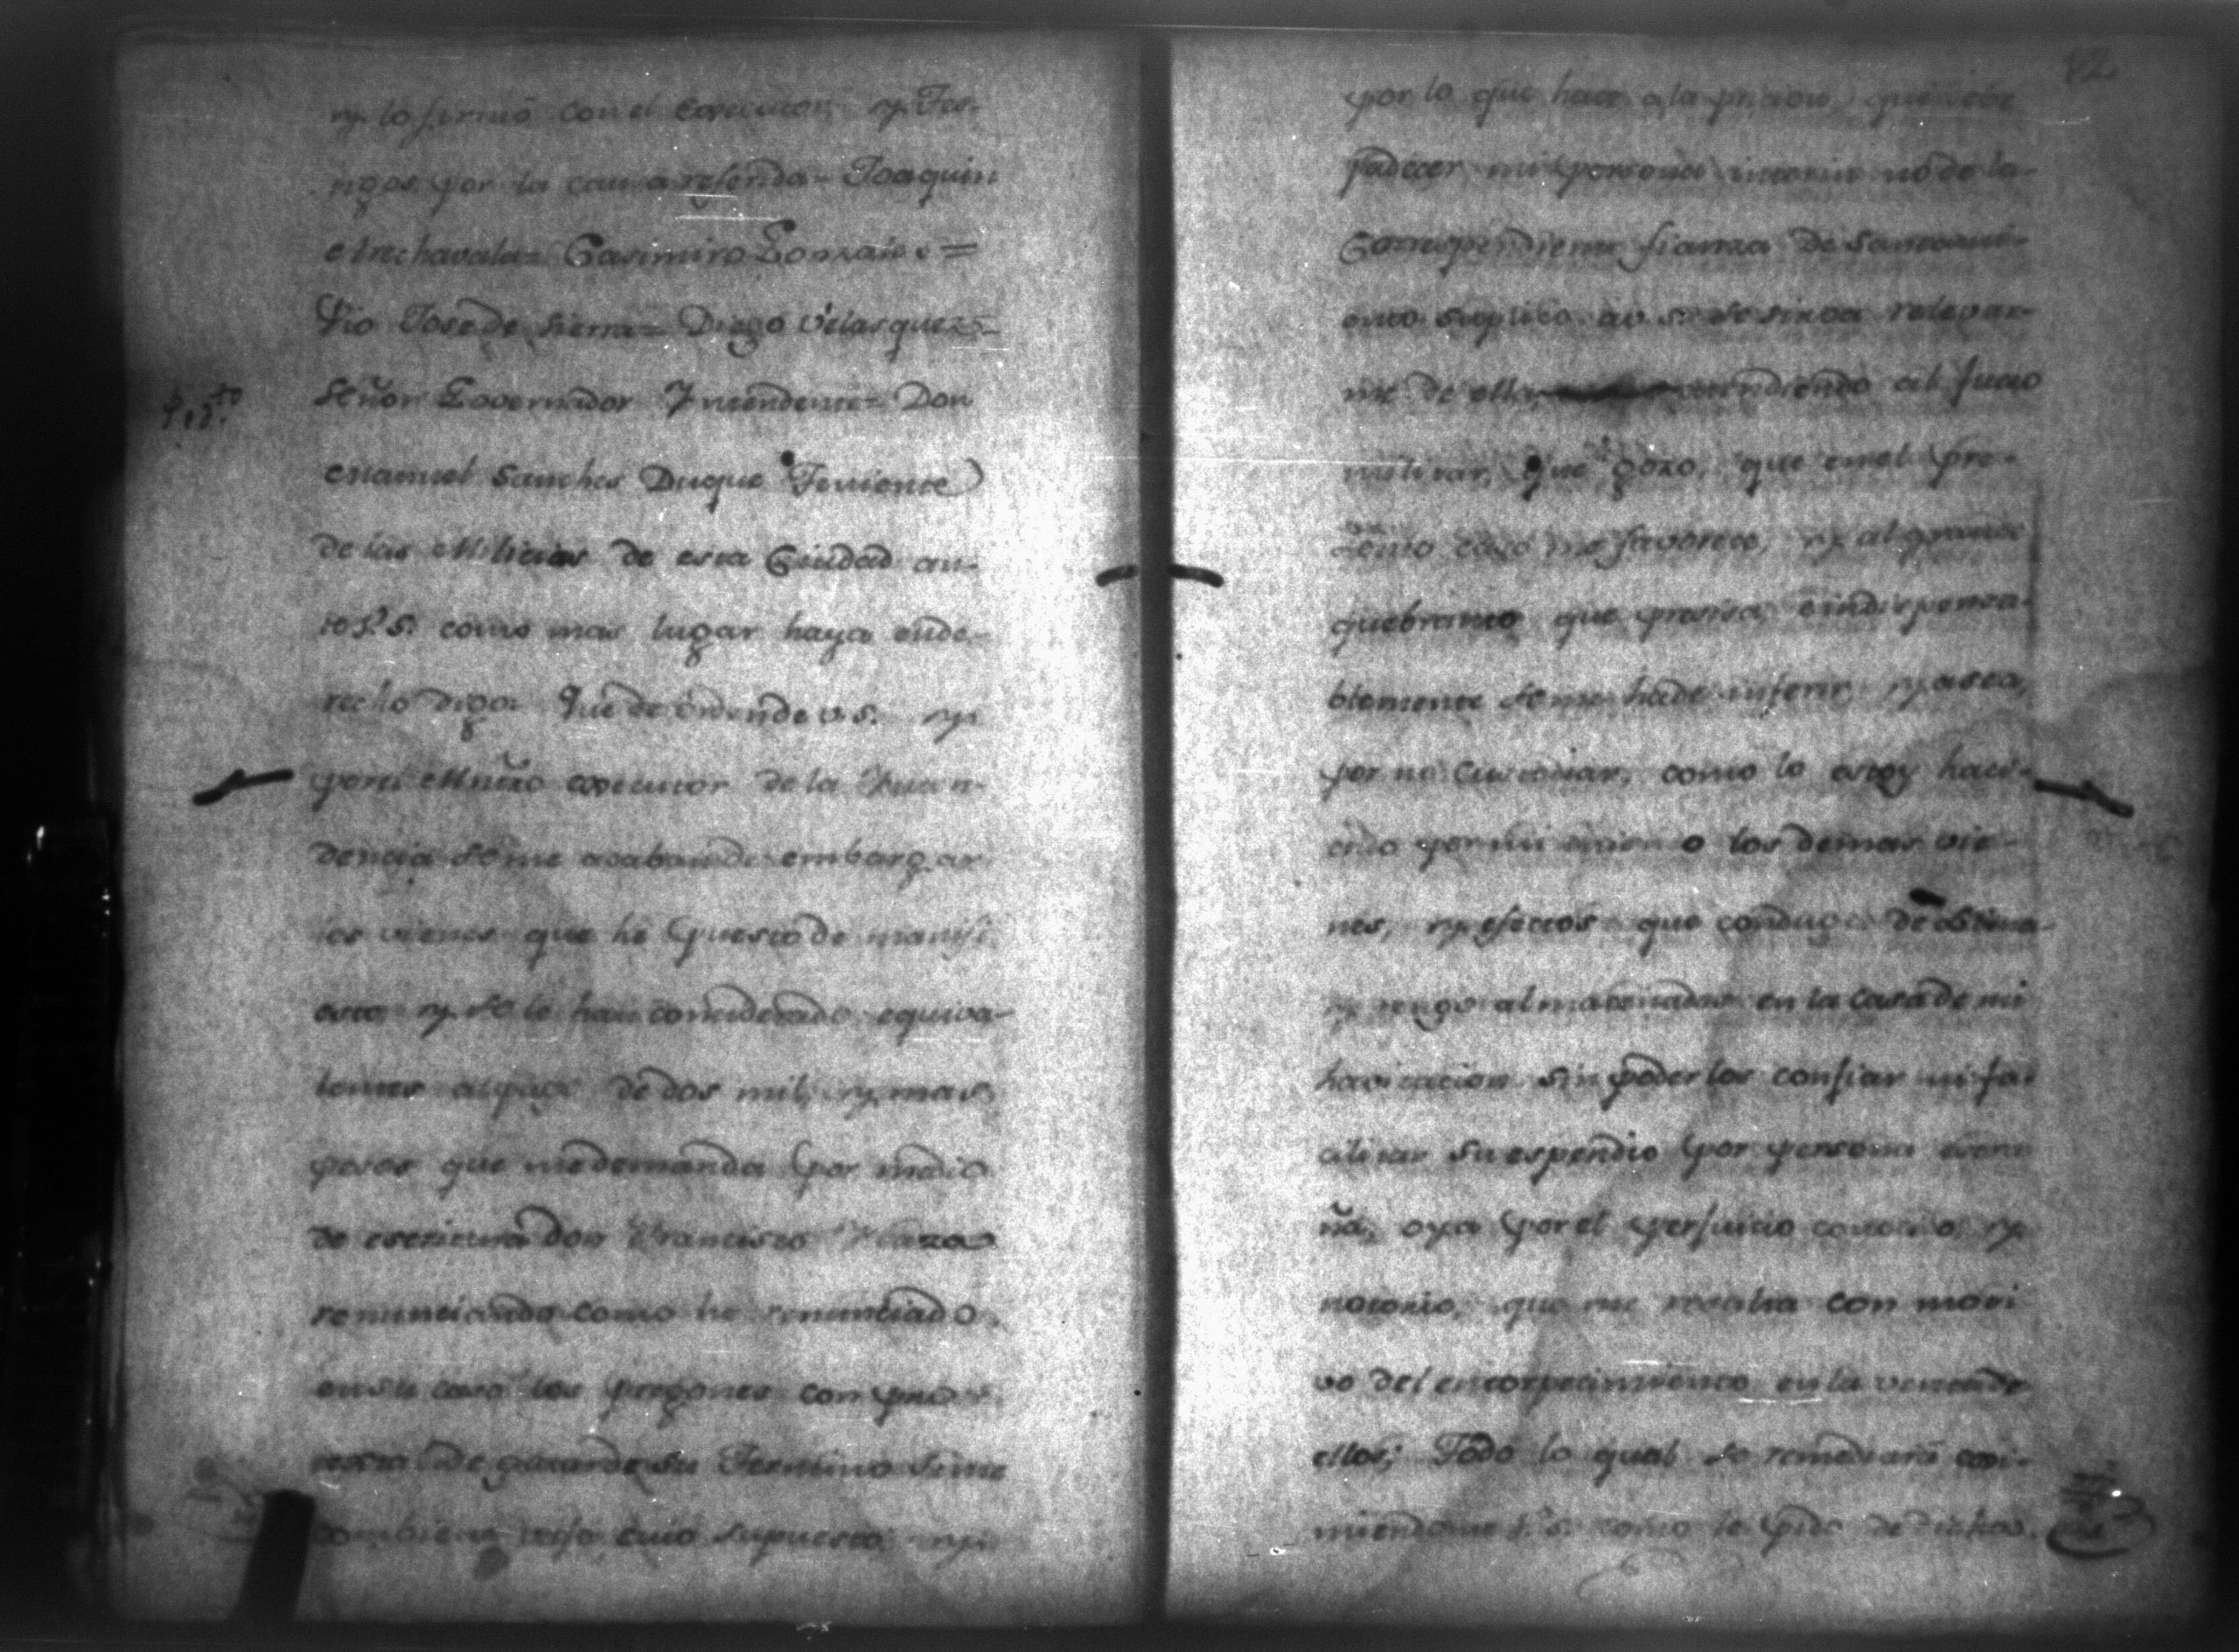 y lo firmó con el Executor y Tes-
tigos por la causa referida = Joaquin
Casimiro Gonzales =
Pio Jose de Sierra = Diego Velasquez =
Ped.to
Señor Governador Yntendente = Don
Manuel Sanches Duque Teniente
de las Milicias de esta Ciudad an-
te V.S. como mas lugar haya en de-
recho digo: Que de orden de V.S. y
por el Mntro executor de la Yntten-
dencia se me acaban de embargar
los vienes que he puesto de manifi
esto y se le han considerado equiva-
lentes al pago de dos mil, y mas
pesos que me demanda por medio
de escritura Don Francisco
renunciando como he renunciado
en su caso los pregones con
de guarde su Termino
combiene cuio supuesto y
82
por lo que hace a la pricion que debe
padecer mi persona interin no de la
Correspondiente fianza de Saneami-
ento suplico a V.S. se sirva relevar-
me de ella atendiendo al fuero
militar, que gozo, que en el pre-
sente caso me favorece, y al grande
quebranto que precisa e indispensa-
blemente se me ha de inferir, ya sea,
por no Custodiar, como lo estoy haci-
endo por mi mismo los demas vie-
nes, y efectos que conduge de
y tengo almacenados en la casa de mi
havitacion sin poderlos confiar ni fa-
cilitar su espendio por persona estra
ña, o ya por el perjuicio conocido y
notorio, que me resulta con moti
vo del entorpecimiento en la venta de
ellos; Todo lo qual se remediará
V.S. como le pido de dichos